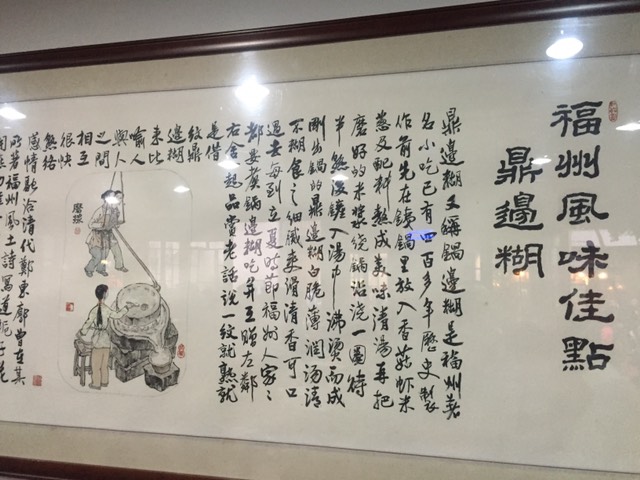 福州風味佳點
鼎邊糊
鼎邊糊又稱鍋邊糊是福州著
名小吃已有四百多年歷史製
作前先在鐵鍋里放入香菇虾米
葱及配料熬成美味清湯再把
磨好的米漿繞鍋沿浇一圈待
半熟後鏟入湯中沸燙而成
剛出鍋的鼎邊糊白脆薄润汤清
不糊食之细腻爽滑清香可口
過去每到立夏時節福州人家々
都要煮鍋邊糊吃并互赠左鄰
右舍起品賞老話说一紋就熟就
是借
紋鼎
邊糊
來比
喻人
與人
之間
相互
很快
熟络
感情融洽清代鄭東廓曾在其
所著福州風土詩寫道